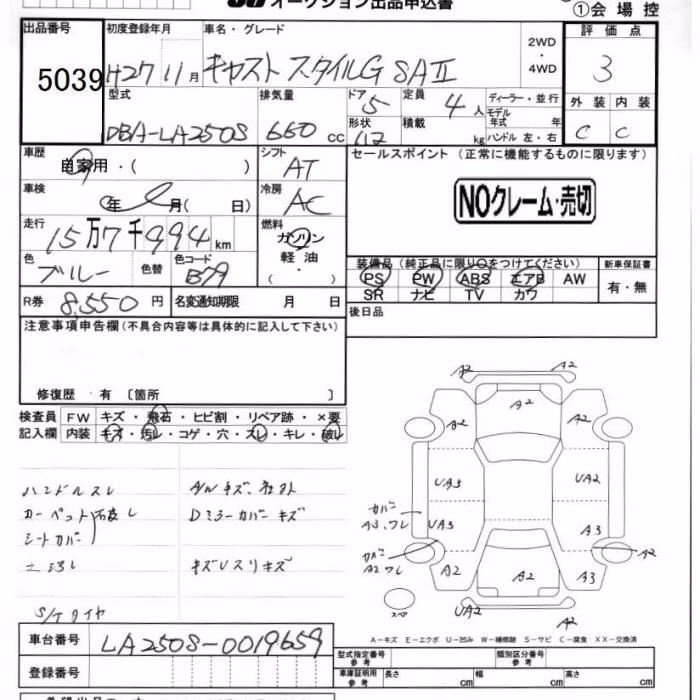 オークション出品申込書
①会場控
出品番号 初度登録年月 車名・グレード 2WD ・ 4WD 評価点
5039 H27 11月 キャスト スタイルG SAⅡ 3
型式 排気量 ドア 定員 ディーラー・並行 外装 内装
DBA-LA250S 660 cc 5 4人 モデル年式 年 C C
形状 積載 kg ハンドル 左・右
車歴 自家用・( ) シフト AT セールスポイント (正常に機能するものに限ります)
車検 年 月( 日) 冷房 AC NOクレーム・売切
走行 15万7千994km 燃料 ガソリン 軽油 ・( )
色 ブルー 色替 色コード B79
装備品 (純正品に限り○をつけてください) 新車保証書
PS PW ABS エアB AW 有・無
SR ナビ TV カワ
R券 8,550円 名変通知期限 月 日 後日品
注意事項申告欄(不具合内容等は具体的に記入して下さい)
修復歴・有 〔箇所 〕
検査員 FW キズ・飛石・ヒビ割・リペア跡・×要
記入欄 内装 キズ・汚レ・コゲ・穴・スレ・キレ・破レ
ハンドルスレ
カーペット 破レ
シートカバー
Dミラーカバー キズ
キズUスリキズ
S/Tタイヤ
A2 A2
A2 A2 A2
UA3 UA2
カバー A3、ワレ UA3 A3
カバー A2ワレ A2
A2 A2 A3
UA2 A2
スペア
A-キズ E-エクボ U-凹み W-補修跡 S-サビ C-腐食 XX-交換済
車台番号 LA250S-0019659
型式指定番号 参考 類別区分番号 参考
登録番号
車庫証明用 参考 長さ cm 幅 cm 高さ cm